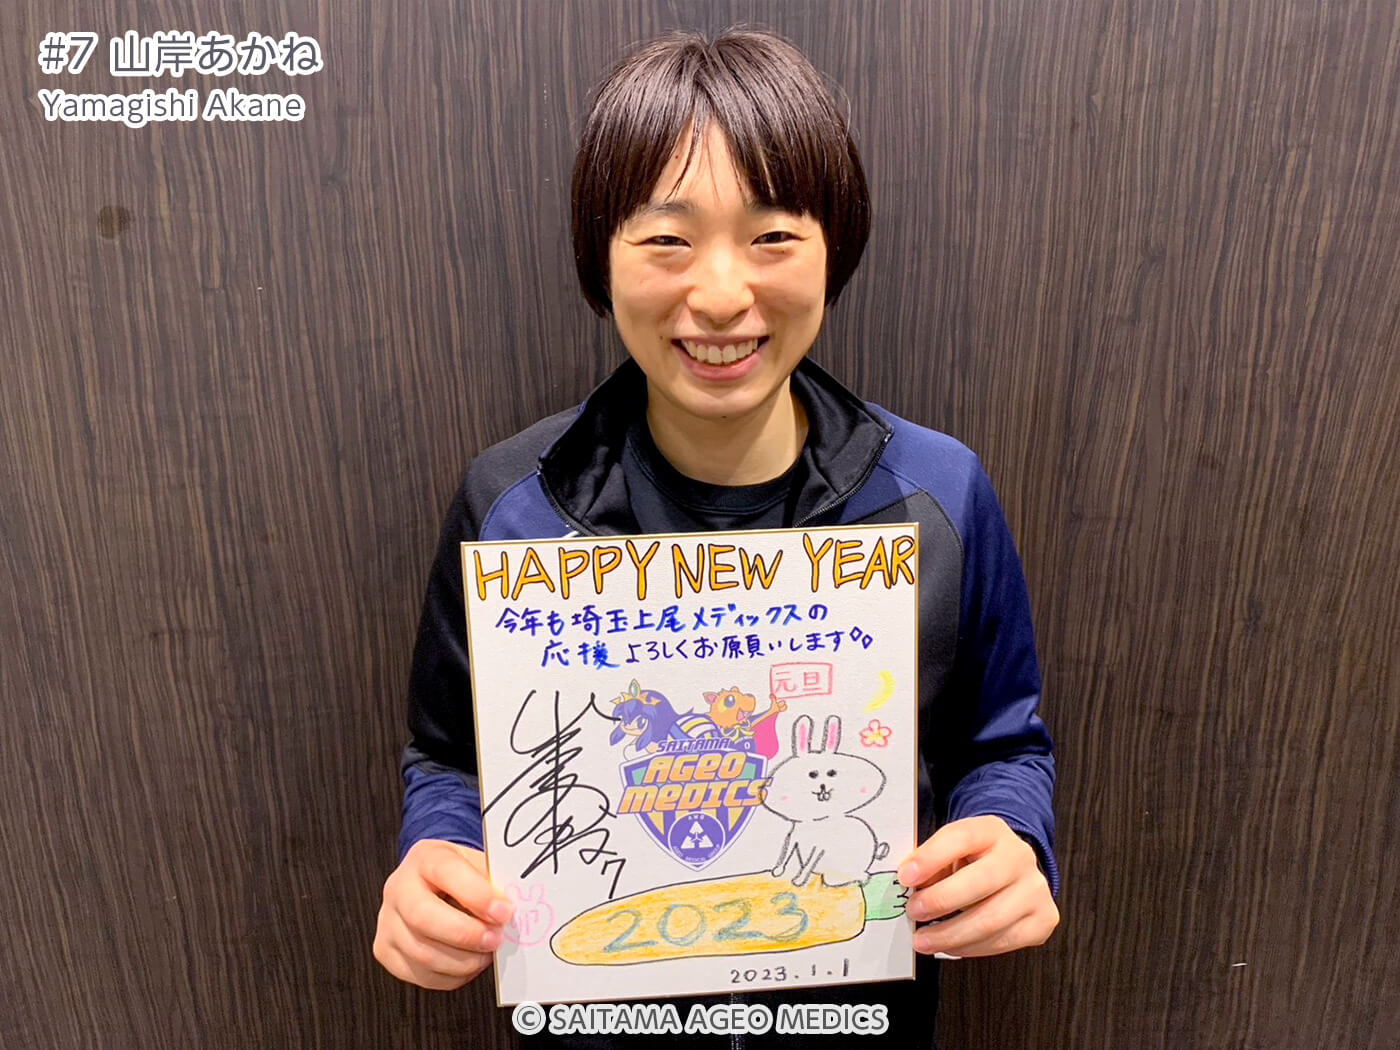 #7 山岸あかね
Yamagishi Akane
HAPPY NEW YEAR
今年も埼玉上尾メディックスの
応援よろしくお願いします
元旦
SAITAMA
AGEO
MEDICS
AMG
AGEO MEDICAL GROUP
7
卯
2023
2023.1.1
© SAITAMA AGEO MEDICS